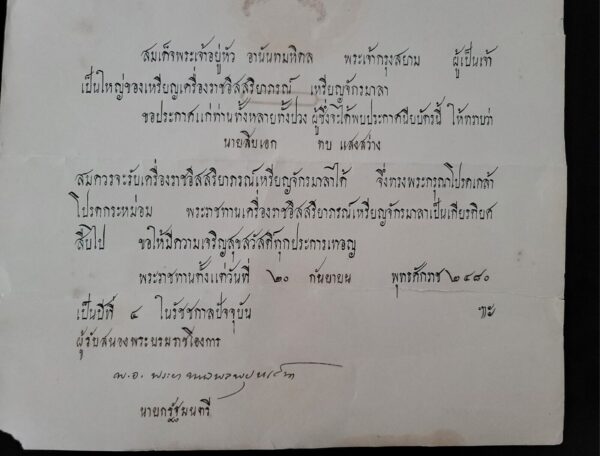 สมเด็จพระเจ้าอยู่หัว อานันทมหิดล พระเจ้ากรุงสยาม ผู้เป็นเจ้า
เป็นใหญ่ของเหรียญเครื่องราชอิสสริยาภรณ์ เหรียญจักรมาลา
ขอประกาศแก่ท่านทั้งหลายทั้งปวง ผู้ซึ่งจะได้พบประกาศนียบัตรนี้ ให้ทราบว่า
นายสิบเอก ทบ แสงสว่าง
สมควรจะรับเครื่องราชอิสสริยาภรณ์เหรียญจักรมาลาได้ จึ่งทรงพระกรุณาโปรดเกล้า
โปรดกระหม่อม พระราชทานเครื่องราชอิสสริยาภรณ์เหรียญจักรมาลาเป็นเกียรติยศ
สืบไป ขอให้มีความเจริญสุขสวัสดิ์ทุกประการเทอญ
พระราชทานตั้งแต่วันที่ ๒๐ กันยายน พุทธศักราช ๒๔๘๐
เป็นปีที่ ๔ ในรัชชกาลปัจจุบัน ฯะ
ผู้รับสนองพระบรมราชโองการ
พ.อ. พระยาพหลพลพยุหเสนา
นายกรัฐมนตรี